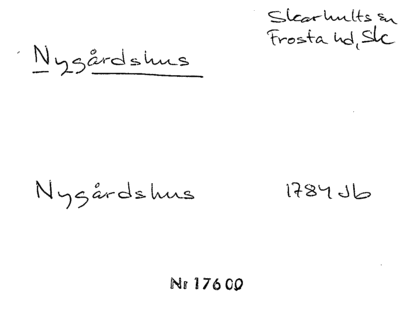 Skarhults sn
Frosta hd, Sk
Nygårdshus
Nygårdshus 1784 Jb
Nr 17600